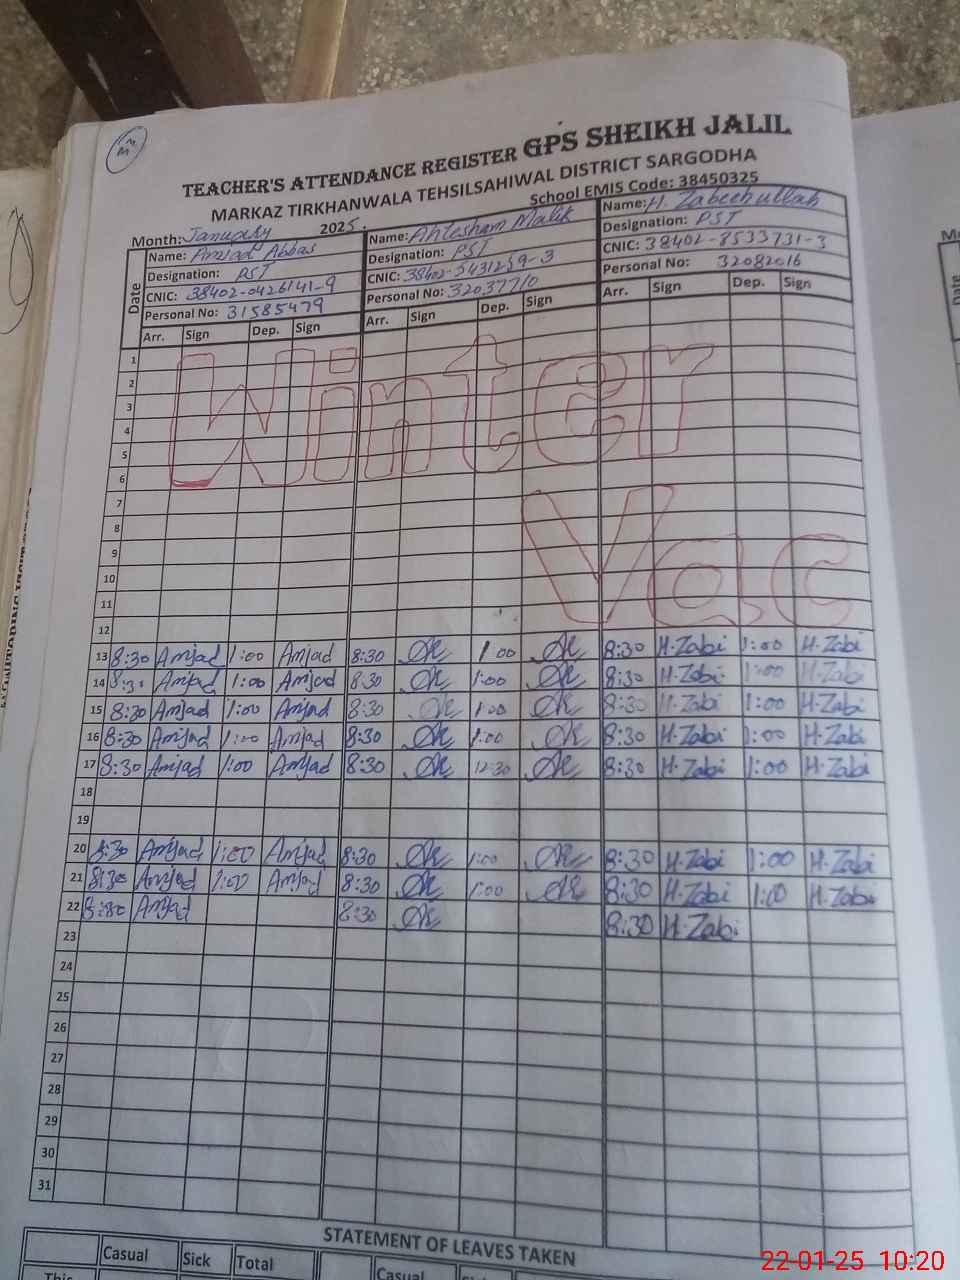 TEACHER'S ATTENDANCE REGISTER GPS SHEIKH JALIL
MARKAZ TIRKHANWALA TEHSILSAHIWAL DISTRICT SARGODHA
School EMIS Code: 38450325
Month: January 2025.
Date
Name: Amjad Abbas
Designation: PST
CNIC: 38402-0426141-9
Personal No: 31585479
Arr. Sign Dep. Sign
Name: Ahtesham Malik
Designation: PST
CNIC: 38402-5431259-3
Personal No: 32037710
Arr. Sign Dep. Sign
Name: H. Zabeehullah
Designation: PST
CNIC: 38402-8533731-3
Personal No: 32082016
Arr. Sign Dep. Sign
1
2
3
4
5
6
Winter
7
8
9
10
11
Vac
12
13 8:30 Amjad 1:00 Amjad 8:30 1:00 8:30 H.Zabi 1:00 H.Zabi
14 8:30 Amjad 1:00 Amjad 8:30 1:00 8:30 H.Zabi 1:00 H.Zabi
15 8:30 Amjad 1:00 Amjad 8:30 1:00 8:30 H.Zabi 1:00 H.Zabi
16 8:30 Amjad 1:00 Amjad 8:30 1:00 8:30 H.Zabi 1:00 H.Zabi
17 8:30 Amjad 1:00 Amjad 8:30 12:30 8:30 H.Zabi 1:00 H.Zabi
18
19
20 8:30 Amjad 1:00 Amjad 8:30 1:00 8:30 H.Zabi 1:00 H.Zabi
21 8:30 Amjad 1:00 Amjad 8:30 1:00 8:30 H.Zabi 1:00 H.Zabi
22 8:30 Amjad 8:30 8:30 H.Zabi
23
24
25
26
27
28
29
30
31
STATEMENT OF LEAVES TAKEN
Casual Sick Total
This
Casual
22-01-25 10:20